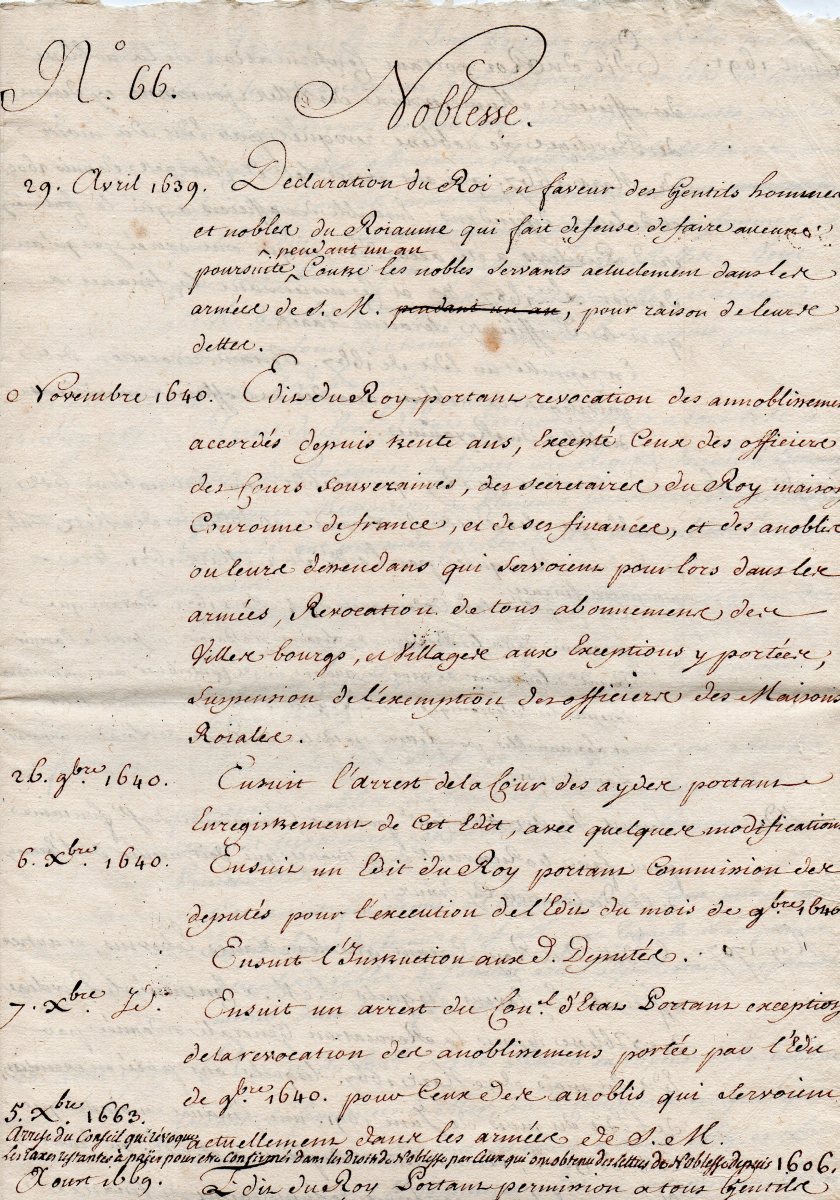 N.º 66. Noblesse.
29. Avril 1639. Declaration du Roi en faveur des Gentils hommes
et nobles du Roiaume qui fait defense de faire aucune
pendant un an
poursuite Contre les nobles servants actuelement dans les
armées de S. M. pendant un an, pour raison de leurs
dettes.
Novembre 1640. Edit du Roy portant revocation des annoblissemen
accordés depuis trente ans, Excepté Ceux des officiers
des Cours Souveraines, des secretaires du Roy maison
Couronne de france, et de ses finances, et des anoblis
ou leurs dessendans qui servoient pour lors dans les
armées, Revocation de tous abonnemens des
Villes bourgs, et Villages aux Exceptions y portées,
suspension de l'exemption des officiers des Maisons
Roiales.
26. 9bre 1640. Ensuit l'arrest de la Cour des aydes portant
Enregistrement de Cet Edit, avec quelques modifications
6. Xbre. 1640. Ensuit un Edit du Roy portant Commission des
deputés pour l'execution de l'Edit du mois de 9bre 1640
Ensuit l'Instruction aux d. Deputés.
7. Xbre. Ensuit un arrest du Conel. d'Etat Portant exception
de la revocation des anoblissemens portée par l'Edit
de 9bre. 1640. pour Ceux des anoblis qui servoient
5. Xbre 1663.
actuellement dans les armées de S. M.
Arrest du Conseil qui révoque
les taxes restantes à païer pour etre Confirmés dans les droits de Noblesse par Ceux qui ont obtenu des lettres de Noblesse depuis 1606.
Aoust 1669. Edit du Roy Portant permission a tous Gentils